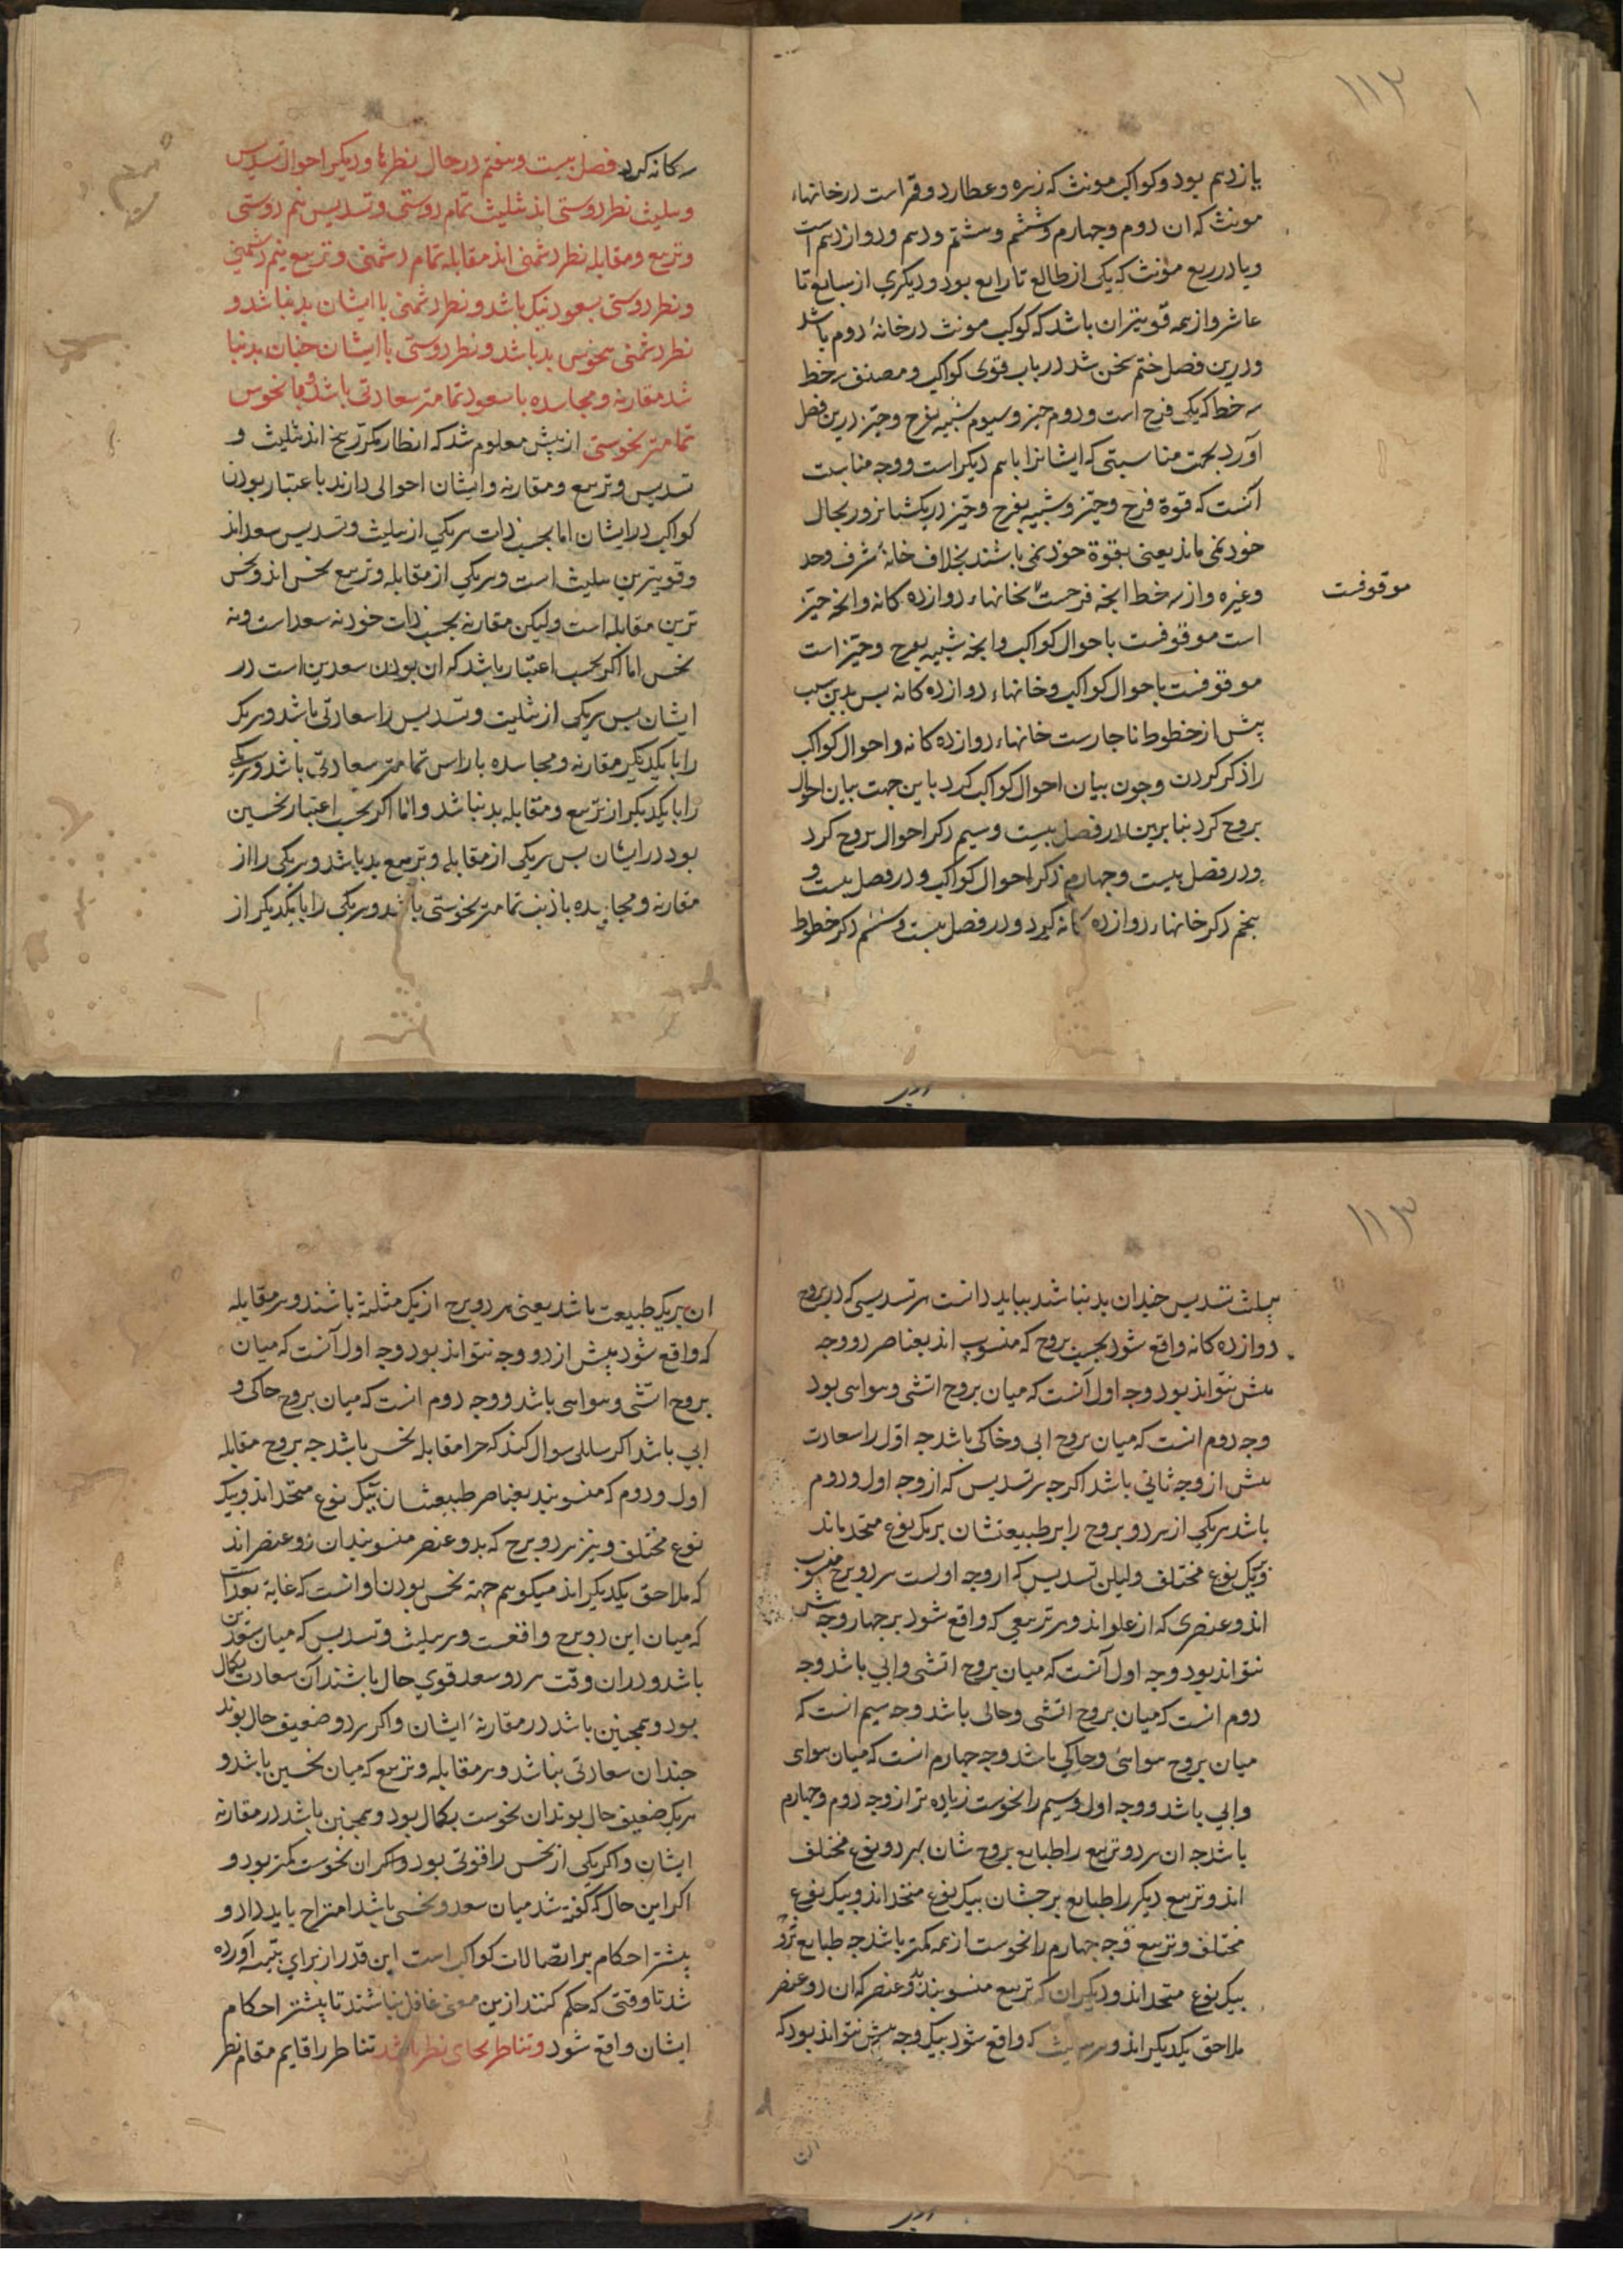 ۱۱۲
یازدهم بود و کواکب مونث که زهره و عطارد و قمر است در خانهاء
مونث که ان دوم و چهارم و ششم و هشتم و دهم و دوازدهم است
و یا در ربع مؤنث که یکی از طالع تا رابع بود و دیگری از سابع تا
عاشر و از همه قویتر ان باشد که کوکب مونث در خانهٔ دوم باشد
و درین فصل ختم سخن شد در باب قوی کواکب و مصنف سه خط
سه خط که یکی فرح است و دوم حیز و سیوم شبیه بفرح و حیز درین فصل
آورد بجهت مناسبتی که ایشانرا باهم دیکر است و وجه مناسبت
آنست که قوة فرح و حیز و شبیه بفرح و حیز در یکشبانروز بحال
خود نمی ماند یعنی بقوة خود نمی باشند بخلاف خانهٔ شرف و حد
و غیره و از سه خط انچه فرحست بخانهاء دوازده کانه و انچه حیز
است موقوفست باحوال کواکب و انچه شبیه بفرح و حیز است
موقوفست
موقوفست باحوال کواکب و خانهاء دوازده کانه بس بدین سبب
پیش از خطوط ناجارست خانهاء دوازده کانه و احوال کواکب
را ذکر کردن و جون بیان احوال کواکب کرد باین جهت بیان احوال
بروج کرد بنابرین در فصل بیست و سیم ذکر احوال بروج کرد
و در فصل بیست و چهارم ذکر احوال کواکب و در فصل بیست و
پنجم ذکر خانهاء دوازده کانه کرد و در فصل بیست و ششم ذکر خطوط
سه کانه کرد فصل بیست و هفتم در حال نظرها و دیکر احوال تسدیس
و تثلیث نظر دوستی اند تثلیث تمام دوستی و تسدیس نیم دوستی
و تربیع و مقابله نظر دشمنی اند مقابله تمام دشمنی و تربیع نیم دشمنی
و نظر دوستی بسعود نیک باشد و نظر دشمنی با ایشان بد نباشد و
نظر دشمنی بنحوس بد باشد و نظر دوستی با ایشان چنان بد نبا
شد مقارنه و مجاسده با سعود تمامتر سعادتی باشد و با نحوس
تمامتر نحوستی از پیش معلوم شد که انظار مکر تاریخ اند تثلیث و
تسدیس و تربیع و مقارنه و ایشان احوالی دارند باعتبار بودن
کواکب در ایشان اما بحسب ذات هر یکی از تثلیث و تسدیس سعد اند
و قویترین تثلیث است و هر یکی از مقابله و تربیع نحس اند و نحس
ترین مقابله است و لیکن مقارنه بحسب ذات خود نه سعد است و نه
نحس اما اکر بحسب اعتبار باشد که ان بودن سعدین است در
ایشان بس هر یکی از تثلیث و تسدیس را سعادتی باشد و هر یک
را با یکدیکر مقارنه و مجاسده با راس تمامتر سعادتی باشد و هر یکی
را با یکدیکر از تربیع و مقابله بد نباشد و اما اکر بحسب اعتبار نحسین
بود در ایشان بس هر یکی از مقابله و تربیع بد باشد و هر یکی را از
مقارنه و مجاسده با ذنب تمامتر نحوستی باشد و هر یکی را با یکدیکر از
۱۱۳
تثلیث تسدیس جندان بد نباشد بباید دانست هر تسدیسی که در بروج
دوازده کانه واقع شود بحسب بروج که منسوب اند بعناصر دو وجه
بیش نتواند بود وجه اول آنست که میان بروج اتشی و هوایی بود
وجه دوم انست که میان بروج ابی و خاکی باشد جه اول را سعادت
بیش از وجه ثانی باشد اکرجه هر تسدیس که از وجه اول و دوم
باشد هر یکی از هر دو بروج را بر طبیعتشان بریک نوع متحد ماند
و بیک نوع مختلف و لیکن تسدیس که از وجه اولست هر دو برج منسوب
اند و عنصری که از علو اند و هر تربیعی که واقع شود بر جهار وجه بیش
نتواند بود وجه اول آنست که میان بروج اتشی و ابی باشد وجه
دوم انست که میان بروج اتشی و خاکی باشد وجه سیم انست که
میان بروج هوائی و خاکی باشد وجه جهارم انست که میان هوای
و ابی باشد و وجه اول و سیم را نحوست زیاده تر از وجه دوم و جهارم
باشد جه ان هر دو تربیع را طبایع بروج شان بهر دو نوع مختلف
اند و تربیع دیکر را طبایع برجشان بیک نوع متحد اند و بیک نوع
مختلف و تربیع وجه جهارم را نحوست از همه کمتر باشد جه طبایع هر دو
بیک نوع متحد اند و دیکر ان که تربیع منسوبند بدو عنصر که ان دو عنصر
ملاحق یکدیکر اند و هر تثلیث که واقع شود بیک وجه بیش نتواند بود که
ان
ان هر یک طبیعت باشد یعنی هر دو برج از یک مثلثة باشند و هر مقابله
که واقع شود بیش از دو وجه نتواند بود وجه اول آنست که میان
بروج اتشی و هوایی باشد و وجه دوم انست که میان بروج خاکی و
ابی باشد اکر سایلی سوال کند که جرا مقابله نحس باشد جه بروج مقابله
اول و دوم که منسوبند بعناصر طبیعتشان بیک نوع متحد اند و بیک
نوع مختلف و نیز هر دو برج که بدو عنصر منسوبند ان دو عنصر اند
که ملاحق یکدیکر اند میکوییم جهة نحس بودن او انست که غایة بعد است
که میان این دو برج واقعست و هر تثلیث و تسدیس که میان سعدین
باشد و دران وقت هر دو سعد قوی حال باشند آن سعادت بکمال
بود و همچنین باشد در مقارنهٔ ایشان و اکر هر دو ضعیف حال بوند
جندان سعادتی نباشد و هر مقابله و تربیع که میان نحسین باشد و
هر یک ضعیف حال بوند ان نحوست بکمال بود و همچنین باشد در مقارنه
ایشان و اکر یکی از نحس را قوتی بود و اکر ان نحوست کمتر بود و
اکر این حال که کفته شد میان سعد و نحسی باشد امتزاج باید داد و
بیشتر احکام بر اتصالات کواکب است این قدر از برای تتمه آورده
شد تا وقتی که حکم کنند ازین معنی غافل نباشند تا بیشتر احکام
ایشان واقع شود و تناظر بجای نظر باشد تناظر را قایم مقام نظر